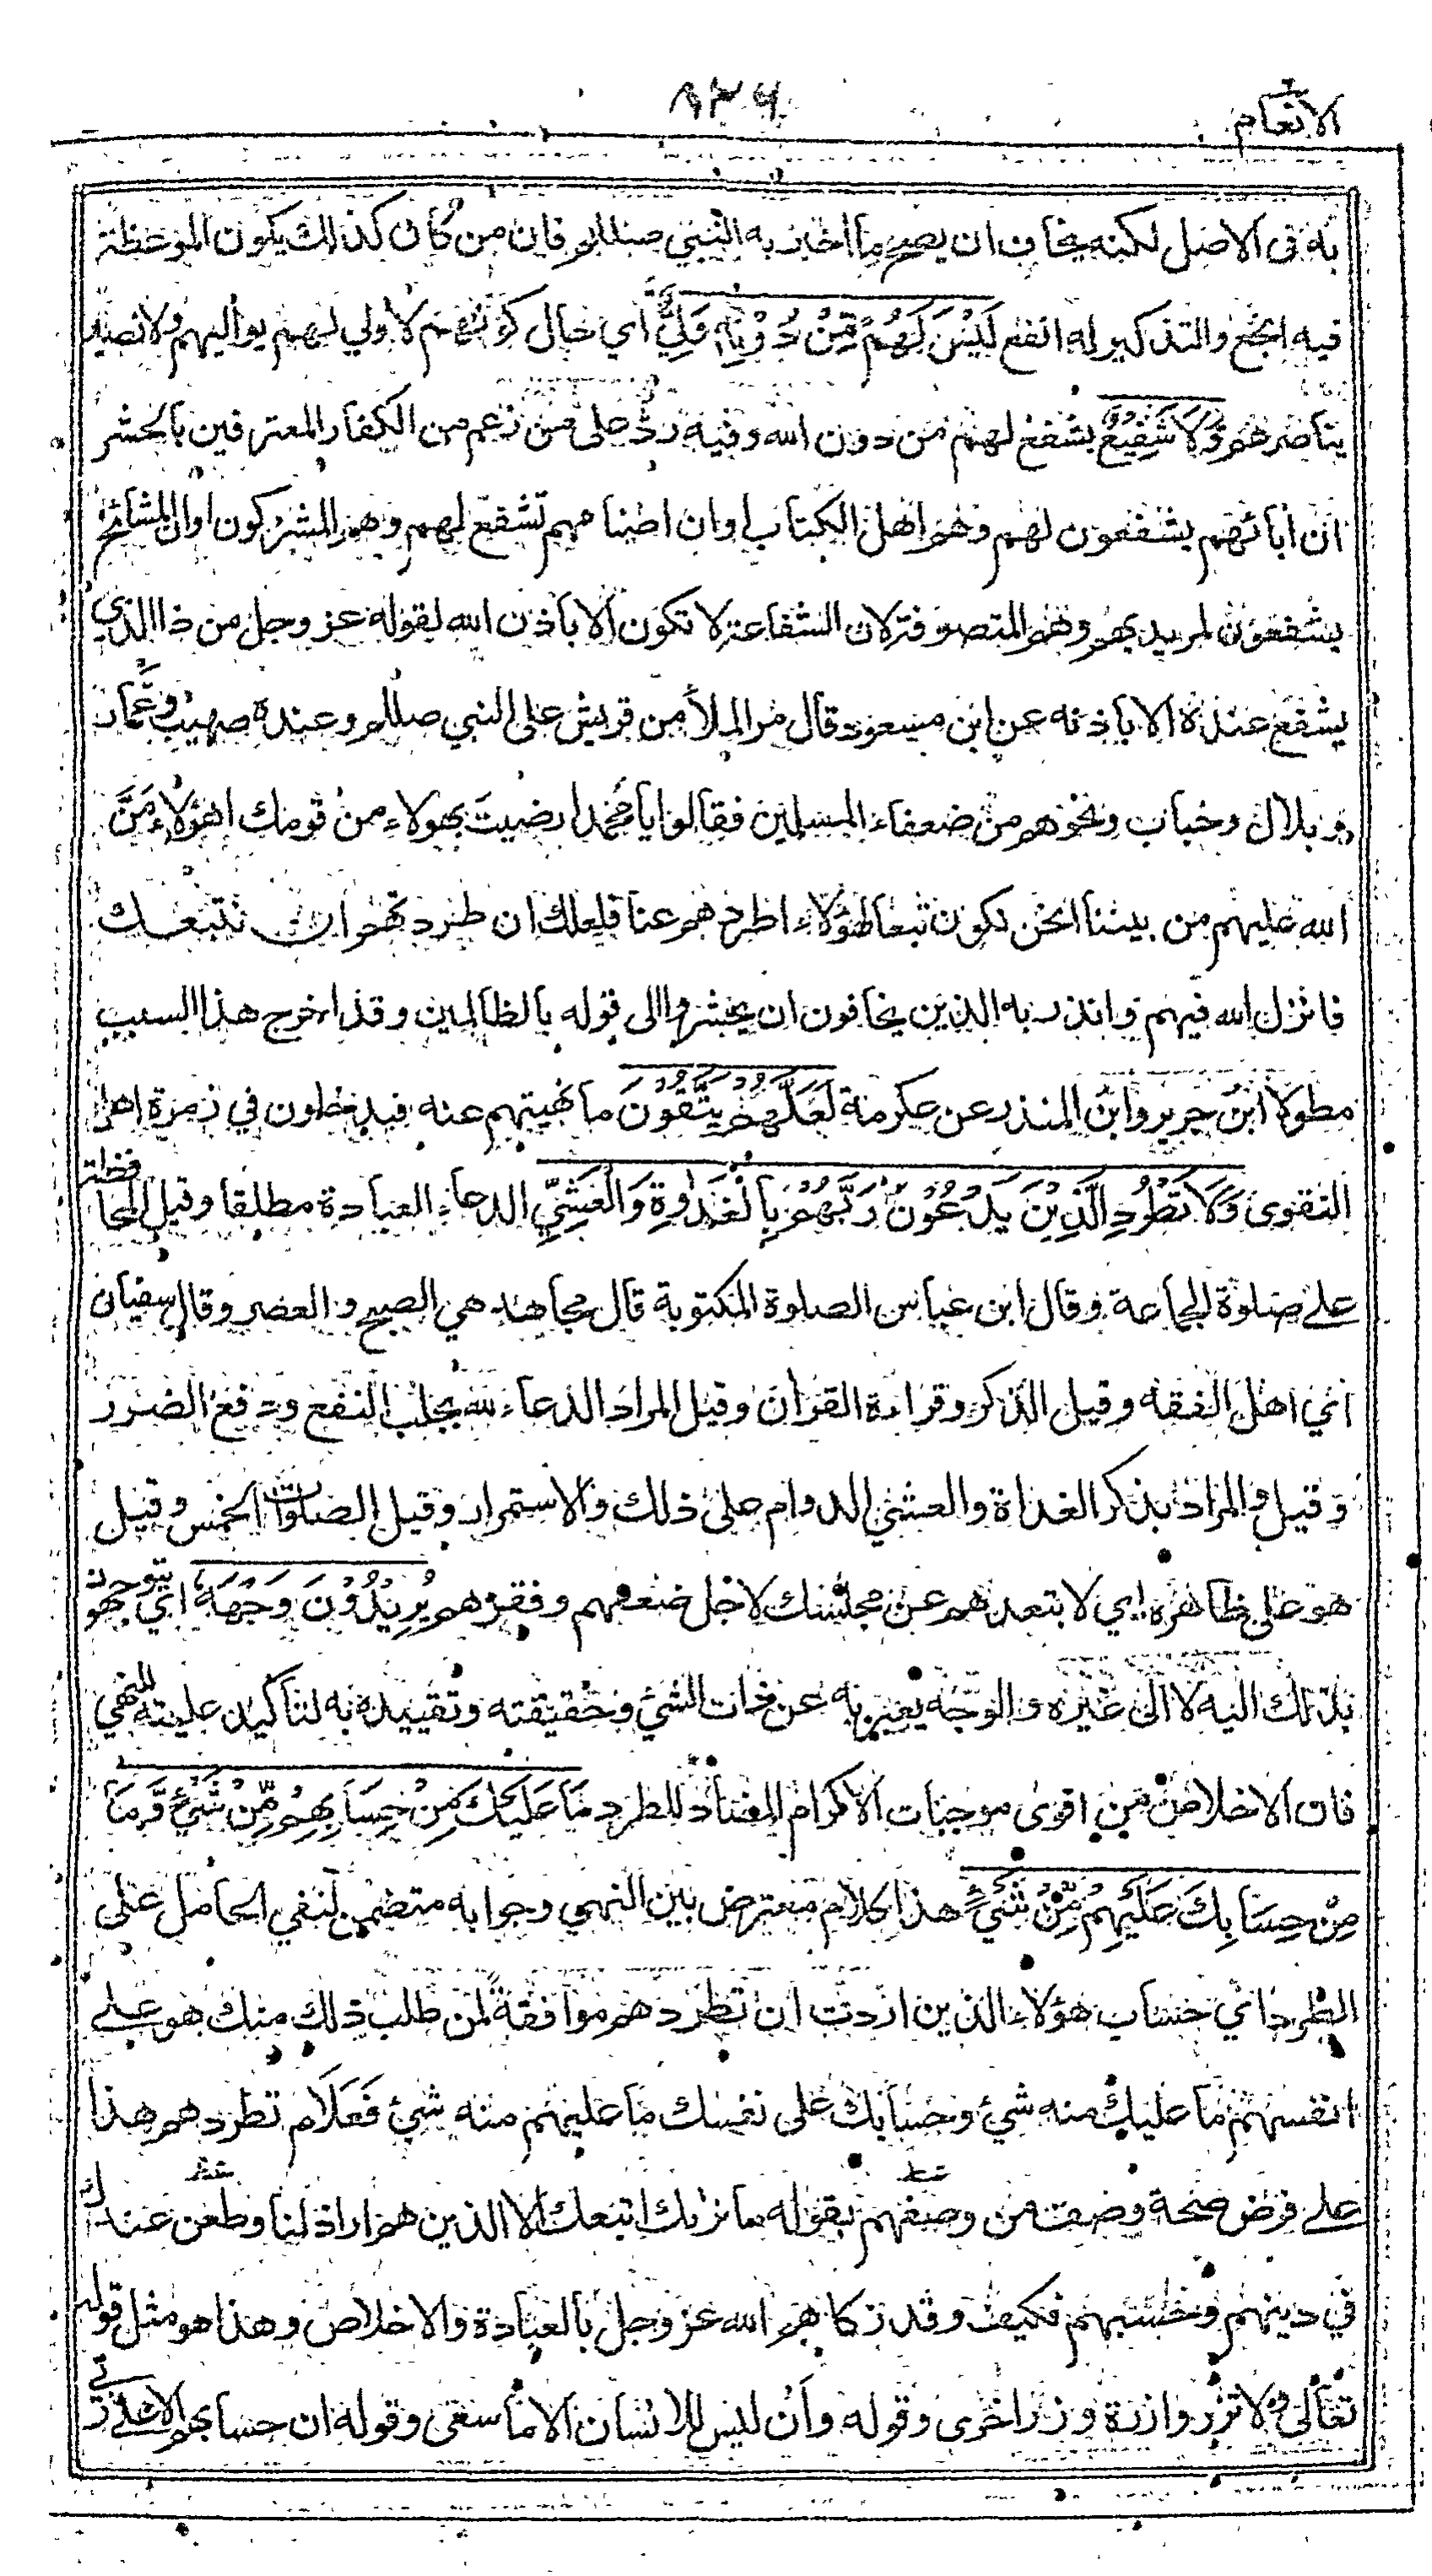 الانعام
٨٣٦
به في الاصل لكنه يخاف ان يصح ما اخبر به النبي صللم فان من كان كذلك يكون الموعظة
فيه انجع والتذكير له انفع لَيْسَ لَهُمْ مِّنْ دُوْنِهٖ وَلِيٌّ اي حال كونهم لا ولي لهم يواليهم ولا نصير
يناصرهم وَّلَا شَفِيْعٌ يشفع لهم من دون الله وفيه رد على من زعم من الكفار المعترفين بالحشر
ان أبائهم يشفعون لهم وهم اهل الكتاب او ان اصنامهم تشفع لهم وهم المشركون او ان المشائخ
يشفعون لمريديهم وهم المتصوفة لان الشفاعة لا تكون الا باذن الله لقوله عز وجل من ذا الذي
يشفع عنده الا باذنه عن ابن مسعود قال مر الملأ من قريش على النبي صللم وعنده صهيب وعمار
وبلال وخباب ونحوهم من ضعفاء المسلمين فقالوا يا محمد ارضيت بهولاء من قومك اهؤلاء مَنَّ
الله عليهم من بيننا انحن نكون تبعا لهؤلاء اطردهم عنا فلعلك ان طردتهم ان نتبعك
فانزل الله فيهم وانذر به الذين يخافون ان يحشروا الى قوله بالظالمين وقد اخرج هذا السبب
مطولا ابن جرير وابن المنذر عن عكرمة لَعَلَّهُمْ يَتَّقُوْنَ ما نهيتهم عنه فيدخلون في زمرة اهل
التقوى وَلَا تَطْرُدِ الَّذِيْنَ يَدْعُوْنَ رَبَّهُمْ بِالْغَدٰوةِ وَالْعَشِيِّ الدعاء العبادة مطلقا وقيل المحافظة
على صلوة الجماعة وقال ابن عباس الصلوة المكتوبة قال مجاهد هي الصبح والعصر وقال سفيان
اي اهل الفقه وقيل الذكر وقراءة القران وقيل المراد الدعاء لله بجلب النفع ودفع الضرر
وقيل والمراد بذكر الغداة والعشي الدوام على ذلك والاستمرار وقيل الصلوات الخمس وقيل
هو على ظاهره اي لا تبعدهم عن مجلسك لاجل ضعفهم وفقرهم يُرِيْدُوْنَ وَجْهَهٗ اي يتوجهون
بذلك اليه لا الى غيره والوجه يعبر به عن ذات الشيء وحقيقته وتقييده به لتاكيد عليته للنهي
فان الاخلاص من اقوى موجبات الاكرام المضاد للطرد مَا عَلَيْكَ مِنْ حِسَابِهِمْ مِّنْ شَيْءٍ وَّمَا
مِنْ حِسَابِكَ عَلَيْهِمْ مِّنْ شَيْءٍ هذا كلام معترض بين النهي وجوابه متضمن لنفي الحامل على
الطرد اي حساب هؤلاء الذين اردت ان تطردهم موافقة لمن طلب ذلك منك هو على
انفسهم ما عليك منه شيء وحسابك على نفسك ما عليهم منه شيء فعلام تطردهم هذا
على فرض صحة وصف من وصفهم بقوله ما نراك اتبعك الا الذين هم اراذلنا وطعن عندك
في دينهم وحسبهم فكيف وقد زكاهم الله عز وجل بالعبادة والاخلاص وهذا هو مثل قوله
تعالى ولا تزر وازرة وزر اخرى وقوله وأن ليس للانسان الا ما سعى وقوله ان حسابهم الا على